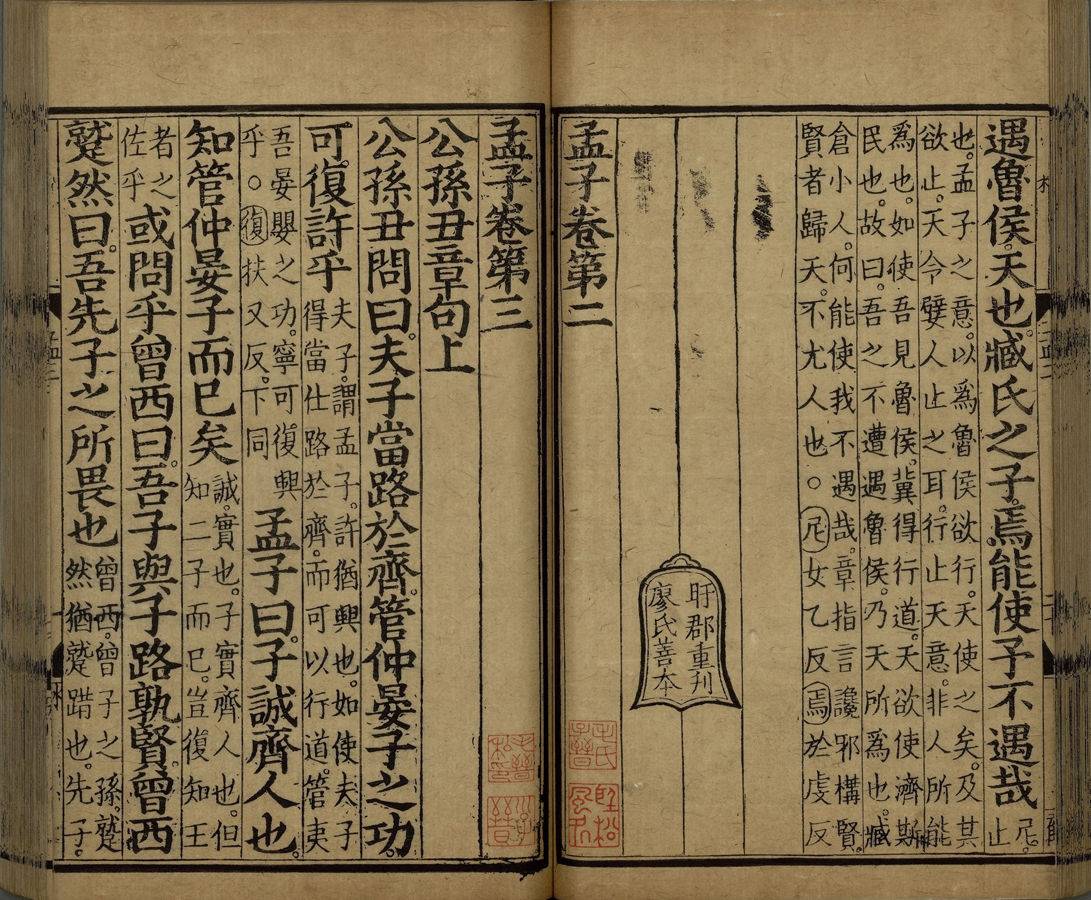 遇魯侯。天也。臧氏之子。焉能使予不遇哉尼。止
也。孟子之意。以為魯侯欲行。天使之矣。及其
欲止。天令嬖人止之耳。行止天意。非人所能
為也。如使吾見魯侯。冀得行道。天欲使濟斯
民也。故曰。吾之不遭遇魯侯。乃天所為也。臧
倉小人。何能使我不遇哉。章指言讒邪構賢。
賢者歸天。不尤人也。○尼女乙反焉於虔反
盱郡重刊
廖氏善本
孟子卷第二
毛氏
子晉
孟子卷第三
公孫丑章句上
公孫丑問曰。夫子當路於齊。管仲晏子之功。
可復許乎夫子。謂孟子。許猶興也。如使夫子
得當仕路於齊。而可以行道。管夷
吾晏嬰之功。寧可復興
乎。○復扶又反。下同
孟子曰。子誠齊人也。
知管仲晏子而已矣誠。實也。子實齊人也。但
知二子而已。豈復知王
者之
佐乎
或問乎曾西曰。吾子與子路孰賢。曾西
蹵然曰。吾先子之所畏也曾西。曾子之孫。蹵
然猶蹵踖也。先子。